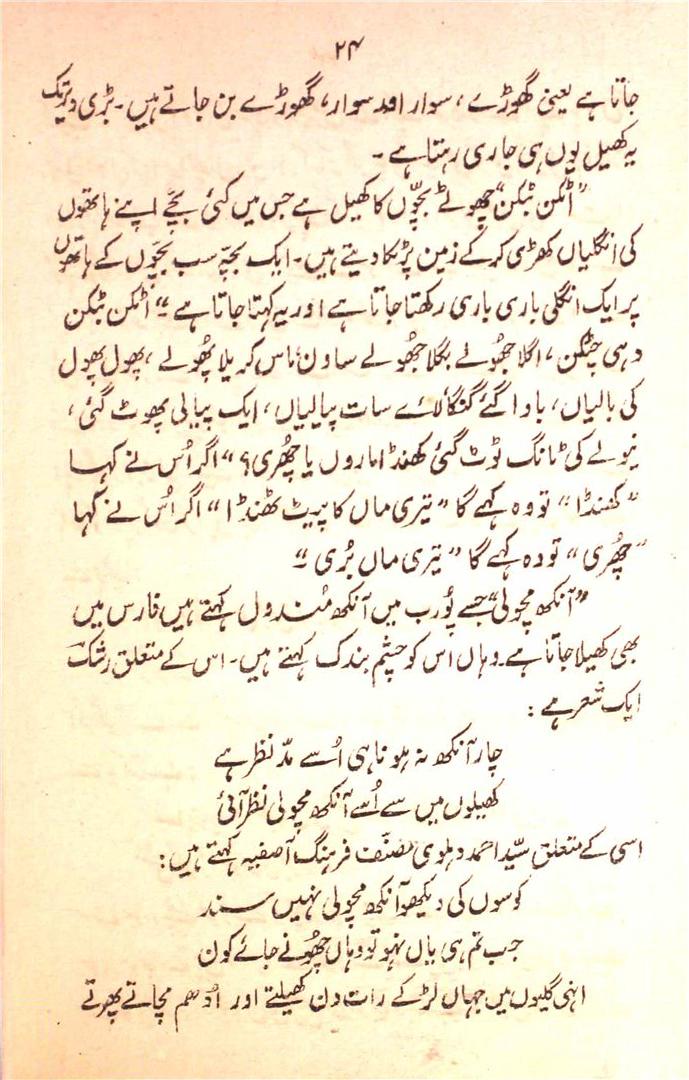 ۲۴
جاتا ہے یعنی گھوڑے، سوار اور سوار، گھوڑے بن جاتے ہیں۔ بڑی دیر تک
یہ کھیل یوں ہی جاری رہتا ہے۔
"اٹکن بٹکن" چھوٹے بچّوں کا کھیل ہے جس میں کئی بچّے اپنے ہاتھوں
کی انگلیاں کھڑی کر کے زمین پر ٹکا دیتے ہیں۔ ایک بچّہ سب بچّوں کے ہاتھوں
پر ایک انگلی باری باری رکھتا جاتا ہے اور یہ کہتا جاتا ہے "اٹکن بٹکن
دہی چٹکن، اگلا جھُولے بگلا جھُولے ساون ماس کریلا پھُولے، پھول پھول
کی بالیاں، باوا گئے گنگا لائے سات پیالیاں، ایک پیالی پھوٹ گئی،
نیولے کی ٹانگ ٹوٹ گئی کھنڈا ماروں یا چھُری؟" اگر اُس نے کہا
"کھنڈا" تو وہ کہے گا "تیری ماں کا پیٹ ٹھنڈا" اگر اُس نے کہا
"چھُری" تو وہ کہے گا "تیری ماں بُری"
"آنکھ مچولی" جسے پُورب میں آنکھ مُندول کہتے ہیں فارس میں
بھی کھیلا جاتا ہے۔ وہاں اس کو چشم بندک کہتے ہیں۔ اس کے متعلق رشکؔ
ایک شعر ہے:
چار آنکھ نہ ہونا ہی اُسے مدّ نظر ہے
کھیلوں میں سے اُسے آنکھ مچولی نظر آئی
اسی کے متعلق سیّد احمد دہلوی مصنّف فرہنگ آصفیہ کہتے ہیں:
کوسوں کی دیکھو آنکھ مچولی نہیں سند
جب تم ہی یاں نہو تو وہاں چھُونے جائے کون
انہی گلیوں میں جہاں لڑکے رات دن کھیلتے اور اُدھم مچاتے پھرتے